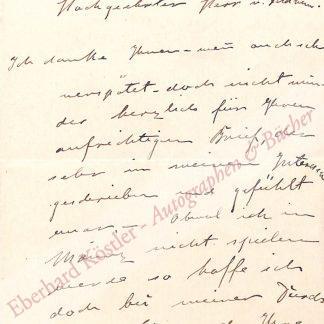 Hochgeehrter Herr v.
Ich danke Ihnen – wenn auch sch
verspätet – doch nicht min
der herzlich für Ihren
aufrichtigen Brief, der
sehr in meinem Interesse
geschrieben und gefühlt
war – Obwol ich in
Mainz nicht spielen
werde so hoffe ich
doch bei meiner
Eberhard Köstler - Autographen & Bücher